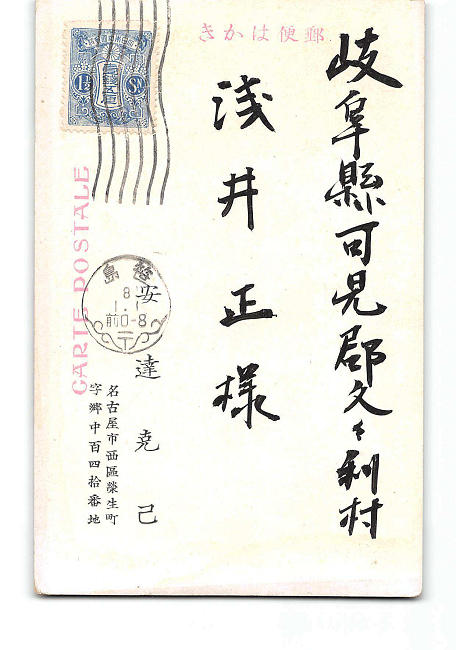 郵便はかき
岐阜縣可児郡久々利村
浅井正様
安達尭己
名古屋市西區榮生町
字郷中百四拾番地
CARTE POSTALE
島
8
1.
前0-8
1½
Sn